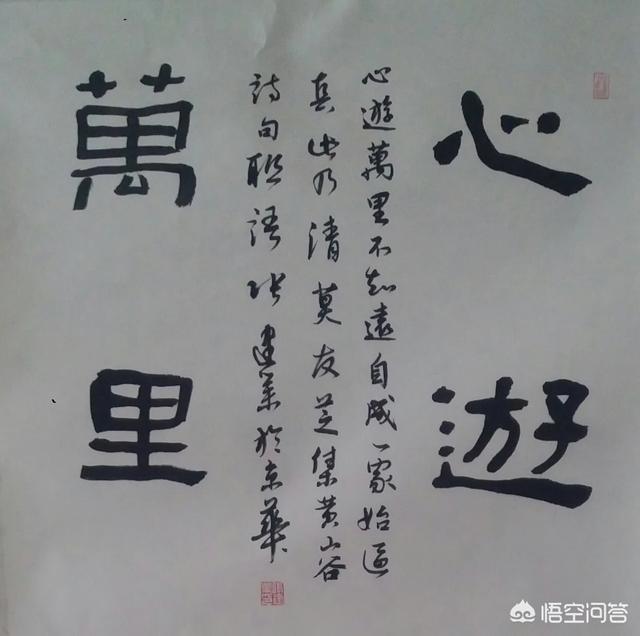 心遊
心遊萬里不知遠自成一家始逼
真此乃清莫友芝集黄山谷
詩句联語张建業於京華
萬里
悟空问答